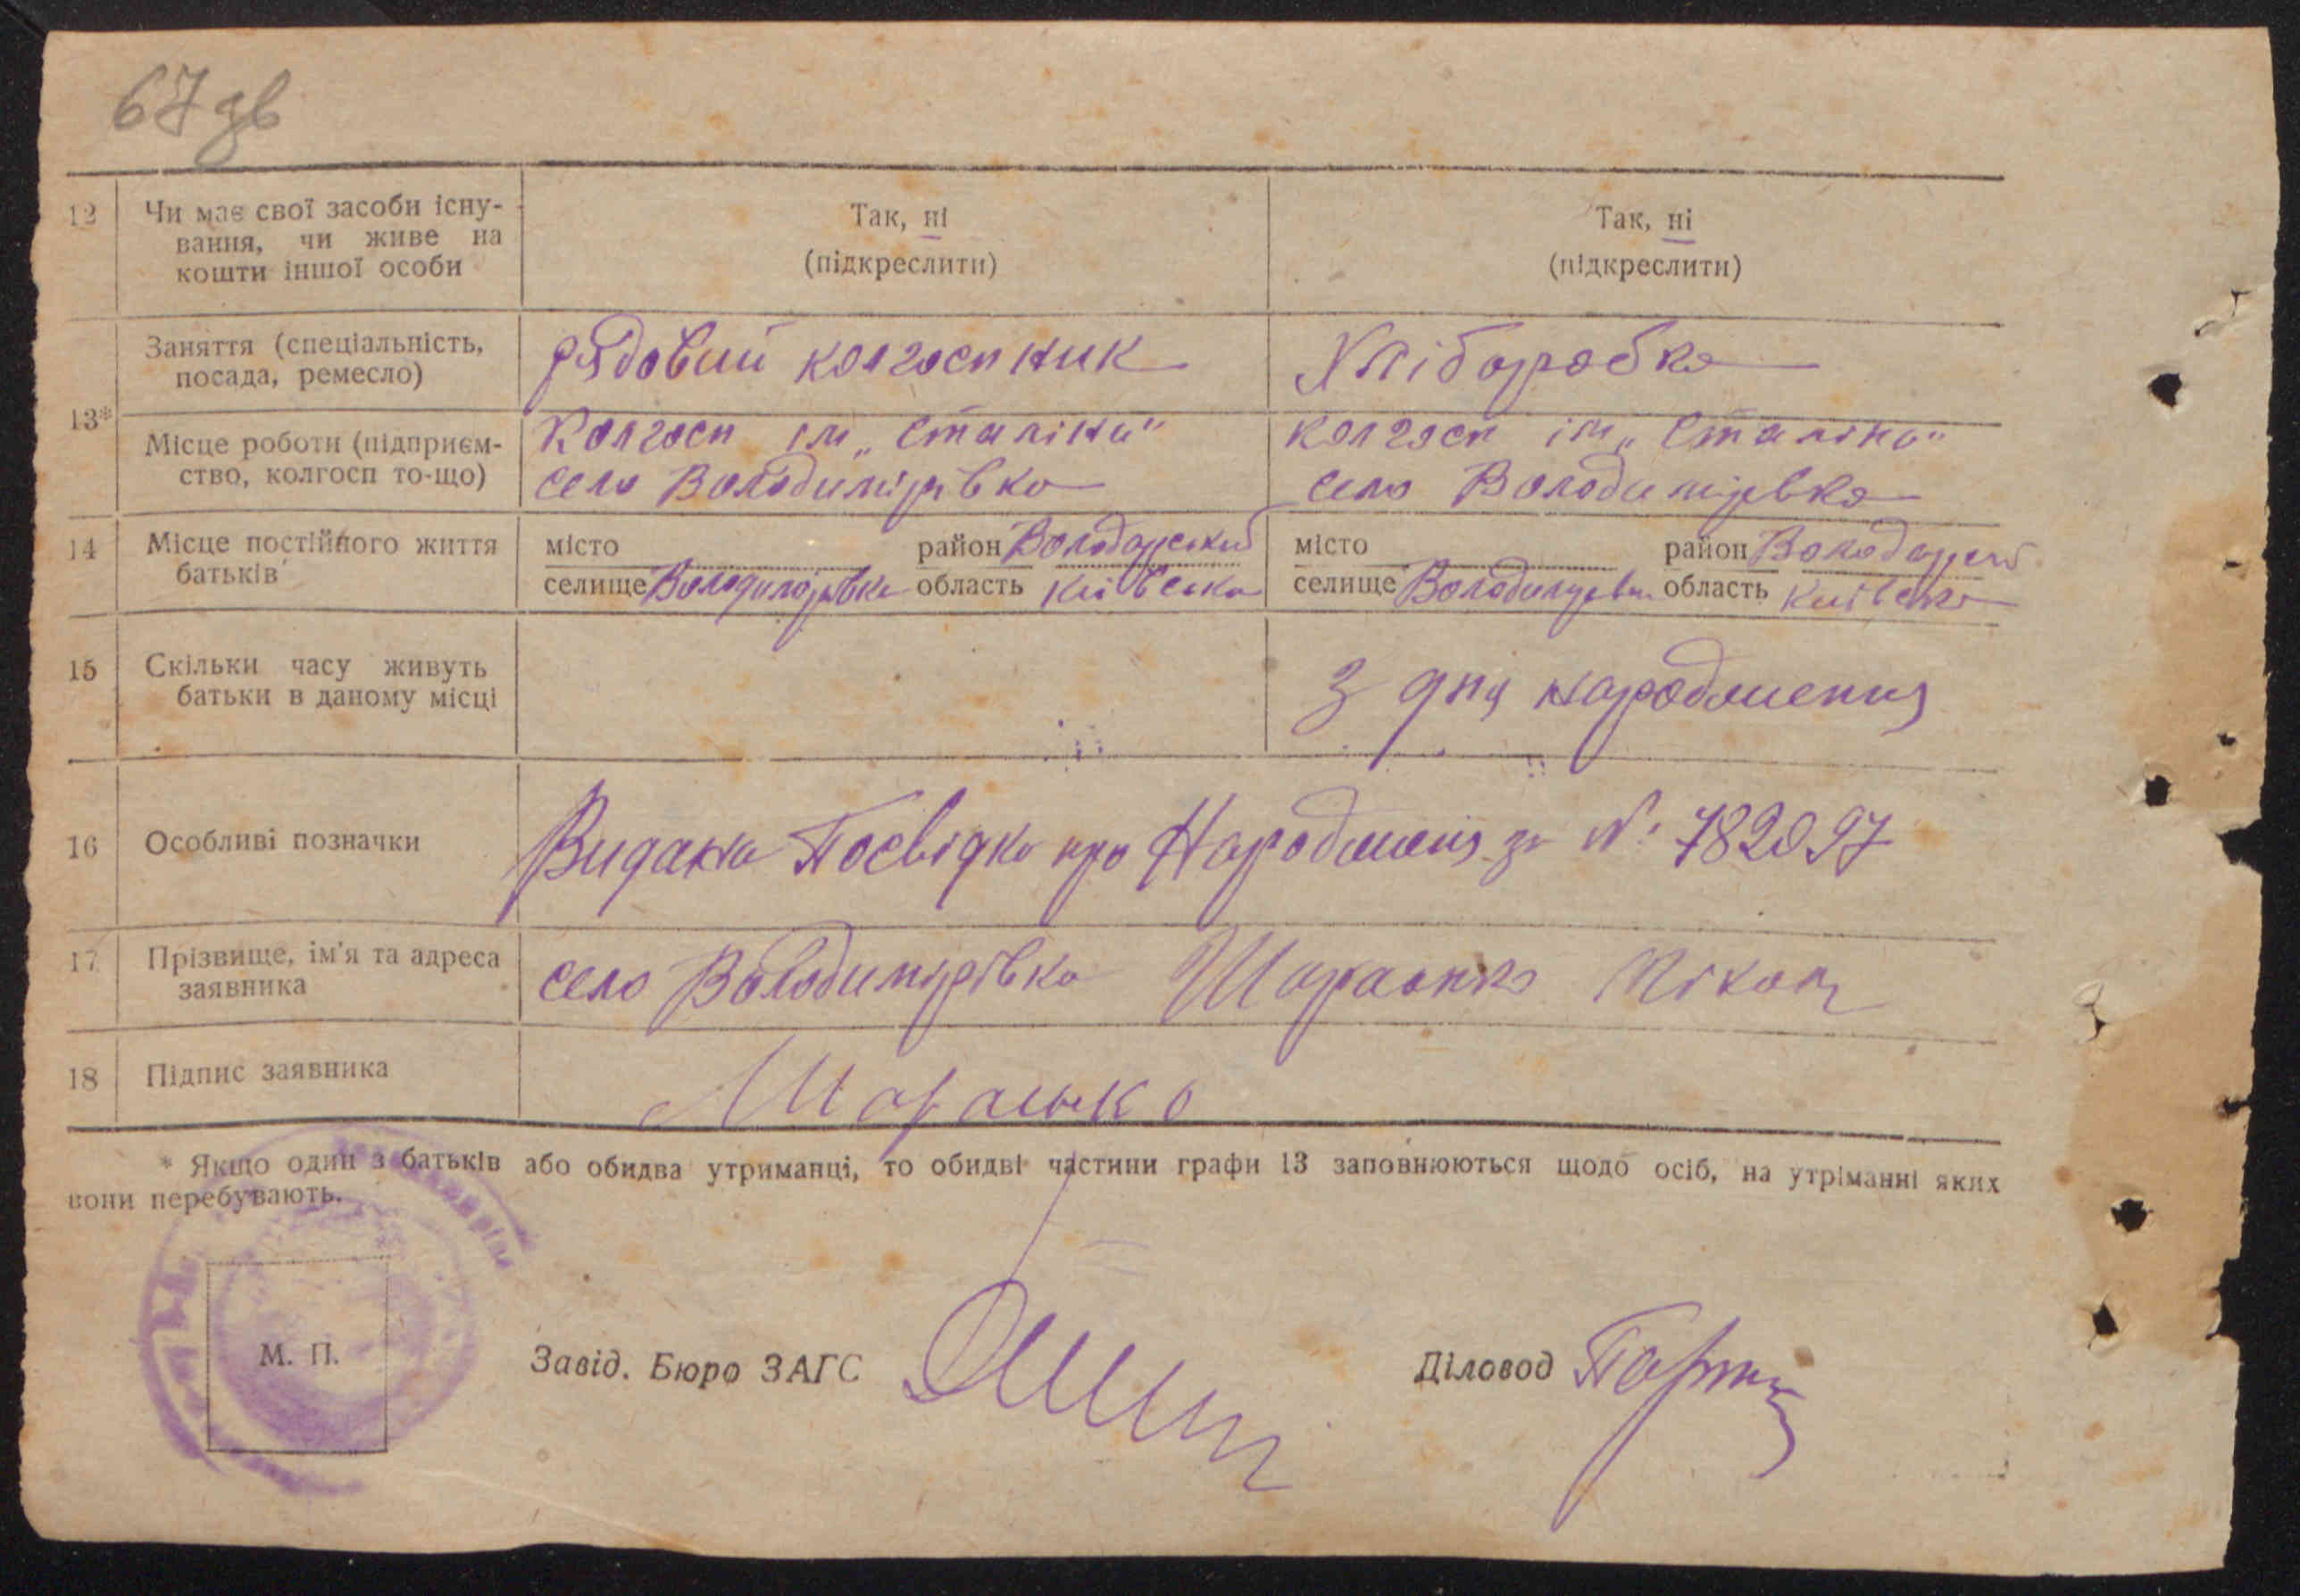 67 зв
12 Чи має свої засоби існу-
вання, чи живе на
кошти іншої особи
Так, ні
(підкреслити)
Так, ні
(підкреслити)
13*
Заняття (спеціальність,
посада, ремесло)
рядовий колгоспник
Хліборобка
Місце роботи (підприєм-
ство, колгосп то-що)
Колгосп ім „Сталіна"
село Володимірівка
колгосп ім „Сталіна"
село Володимірівка
14 Місце постійного життя
батьків
місто район Володарський
селище Володимірівка область Київська
місто район Володарський
селище Володимірівка область Київська
15 Скільки часу живуть
батьки в даному місці
З дня народження
16 Особливі позначки
Видана Посвідка про Народженя за №: 782097
17 Прізвище, ім'я та адреса
заявника
село Володимірівка Шарапко
18 Підпис заявника
* Якщо один з батьків або обидва утриманці, то обидві частини графи 13 заповнюються щодо осіб, на утріманні яких
вони перебувають.
М. П.
Завід. Бюро ЗАГС
Діловод